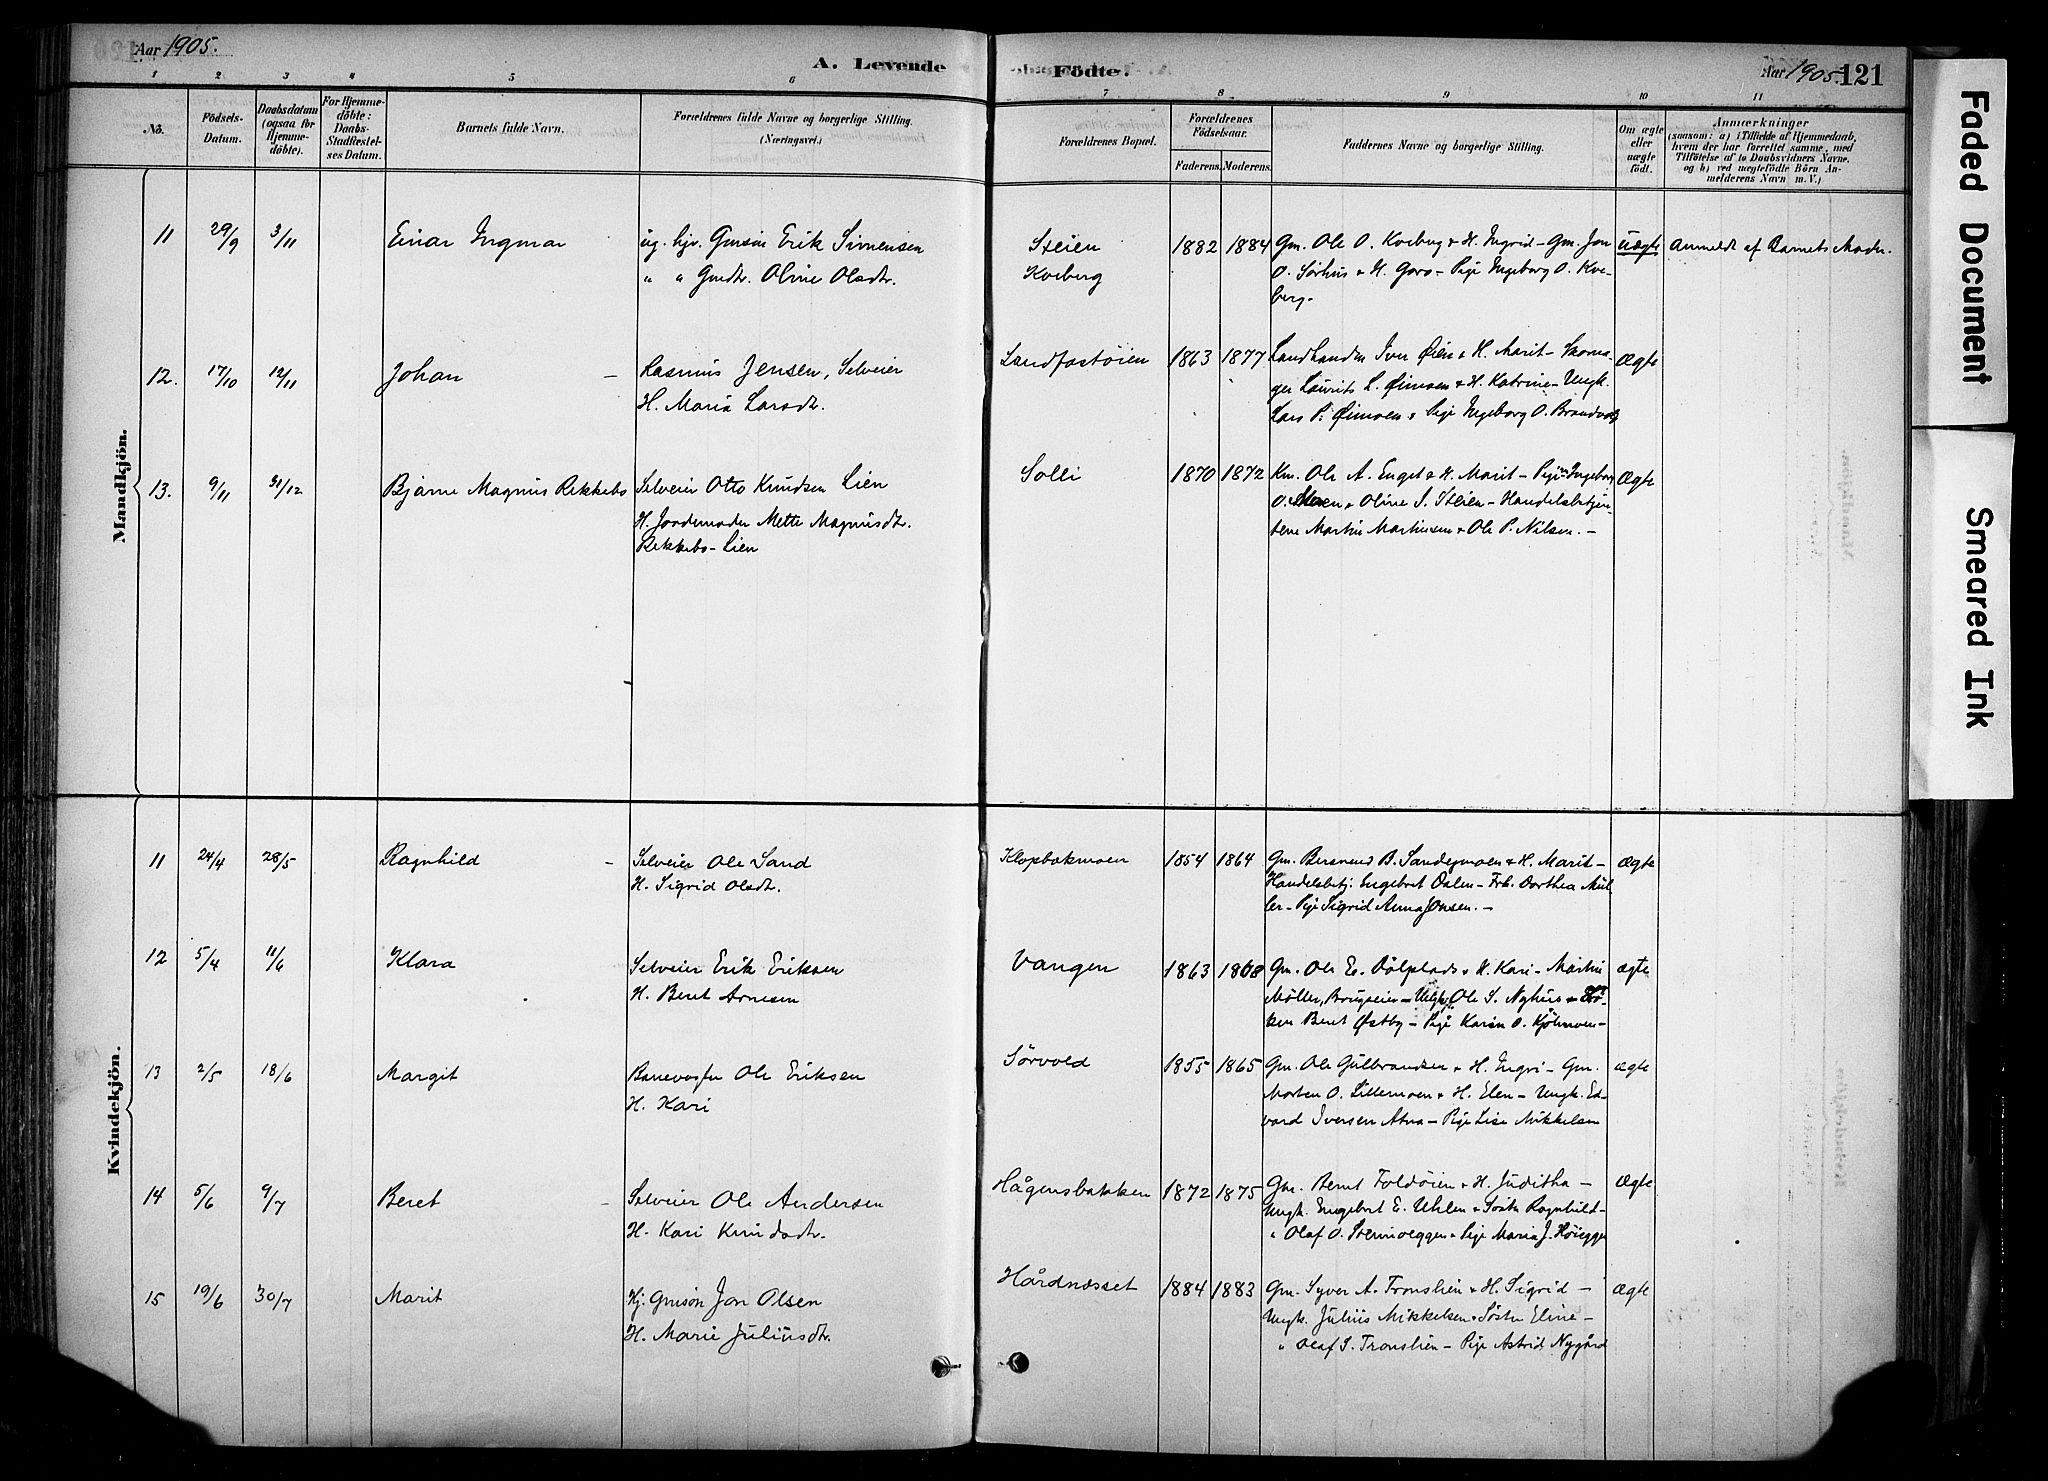 Aar 1905.
A. Levende
Födte.
Aar 1905. 121
1 2 3 4 5 6 7 8 9 10 11
No.
Födsels-
Datum.
Daabsdatum
(ogsaa for
Hjemme-
döbte).
For Hjemme-
döbte:
Daabs-
Stadfæstel-
ses Datum.
Barnets fulde Navn.
Forældrenes fulde Navne og borgerlige Stilling.
(Næringsvei.)
Forældrenes Bopæl.
Forældrenes
Födselsaar.
Faderens. Moderens.
Faddernes Navne og borgerlige Stilling.
Om ægte
eller
uægte
født.
Anmærkninger
(saasom: a) i Tilfælde af Hjemmedaab,
hvem der har forrettet samme, med
Tilföielse af to Daabsvidners Navne.
og b) ved uægtefödte Börn An-
melderens Navn m. V.)
Mandkjön.
11 29/9 3/11 Einar Ingmar
ug. hjv. Gmsön Erik Simensen
" " Gmdtr. Oline Olsdtr.
Steien
Kveberg
1882 1884
Gm. Ole O. Kveberg & H. Ingrid - Gm. Jon
O. Sörhus & H. Goro - Pige Ingeborg O. Kve-
berg.
uægte
Anmeldt af Barnets Moder.
12. 17/10 12/11 Johan
Rasmus Jensen, Selveier
H. Maria Larsdtr.
Sandfostöien
1863 1877
Landhandler Iver Øien & H. Marit - Skoma-
ger Laurits L. Øimoen & H. Katrine - Ungk.
Lars P. Øimoen & Pige Ingeborg O. Brandvold
Ægte
13. 9/11 31/12 Bjarne Magnus Rekkebo
Selveier Otto Knudsen Lien
H. Jordemoder Mette Magnusdtr.
Rekkebo-Lien
Solli
1870 1872
Km. Ole A. Enget & H. Marit - Pigerne Ingeborg
O. Moen & Oline S. Steien - Handelsbetjen-
tene Martin Martinsen & Ole P. Nilsen. -
Ægte
Kvindekjön.
11 24/4 28/5 Ragnhild
Selveier Ole Sand
H. Sigrid Olsdtr.
Klopbakmoen
1854 1864
Gm. Bersvend B. Sandegmoen & H. Marit -
Handelsbetj. Engebret Dalen - Frk. Dorthea Mül-
ler - Pige Sigrid Anna Jonsen. -
Ægte
12 5/4 11/6 Klara
Selveier Erik Eriksen
H. Beret Arnesen
Vangen
1863 1868
Gm. Ole E. Dölplads & H. Kari - Martin
Möller, Brugseier - Ungk. Ole S. Nyhus &
ken Beret Østby - Pige Karen O. Kjölmoen -
ægte
13 2/5 18/6 Margit
Banevogter Ole Eriksen
H. Kari
Sörvold
1855 1865
Gm. Ole Gulbrandsen & H. Ingri - Gm.
Morten O. Lillemoen & H. Elen - Ungk. Ed-
vard Iversen Atna - Pige Lise Mikkelsen
ægte
14 5/6 9/7 Beret
Selveier Ole Andersen
H. Kari Knudsdtr.
Hågensbakken
1872 1875
Gm. Bernt Foldöien & H. Juditha -
Ungk. Engebret E. Uhlen & Söster Ragnhild -
" Olaf O. Stenmoeggen & Pige Maria J. Höiegge
Ægte
15 19/6 30/7 Marit
Hj. Gmsön Jon Olsen
H. Marie Juliusdtr.
Hårdnæsset
1884 1883
Gm. Syver A. Tronslien & H. Sigrid -
Ungk. Julius Mikkelsen & Söster Eline -
" Olaf S. Tronslien - Pige Astrid Nygård
Ægte
Faded Document
Smeared Ink